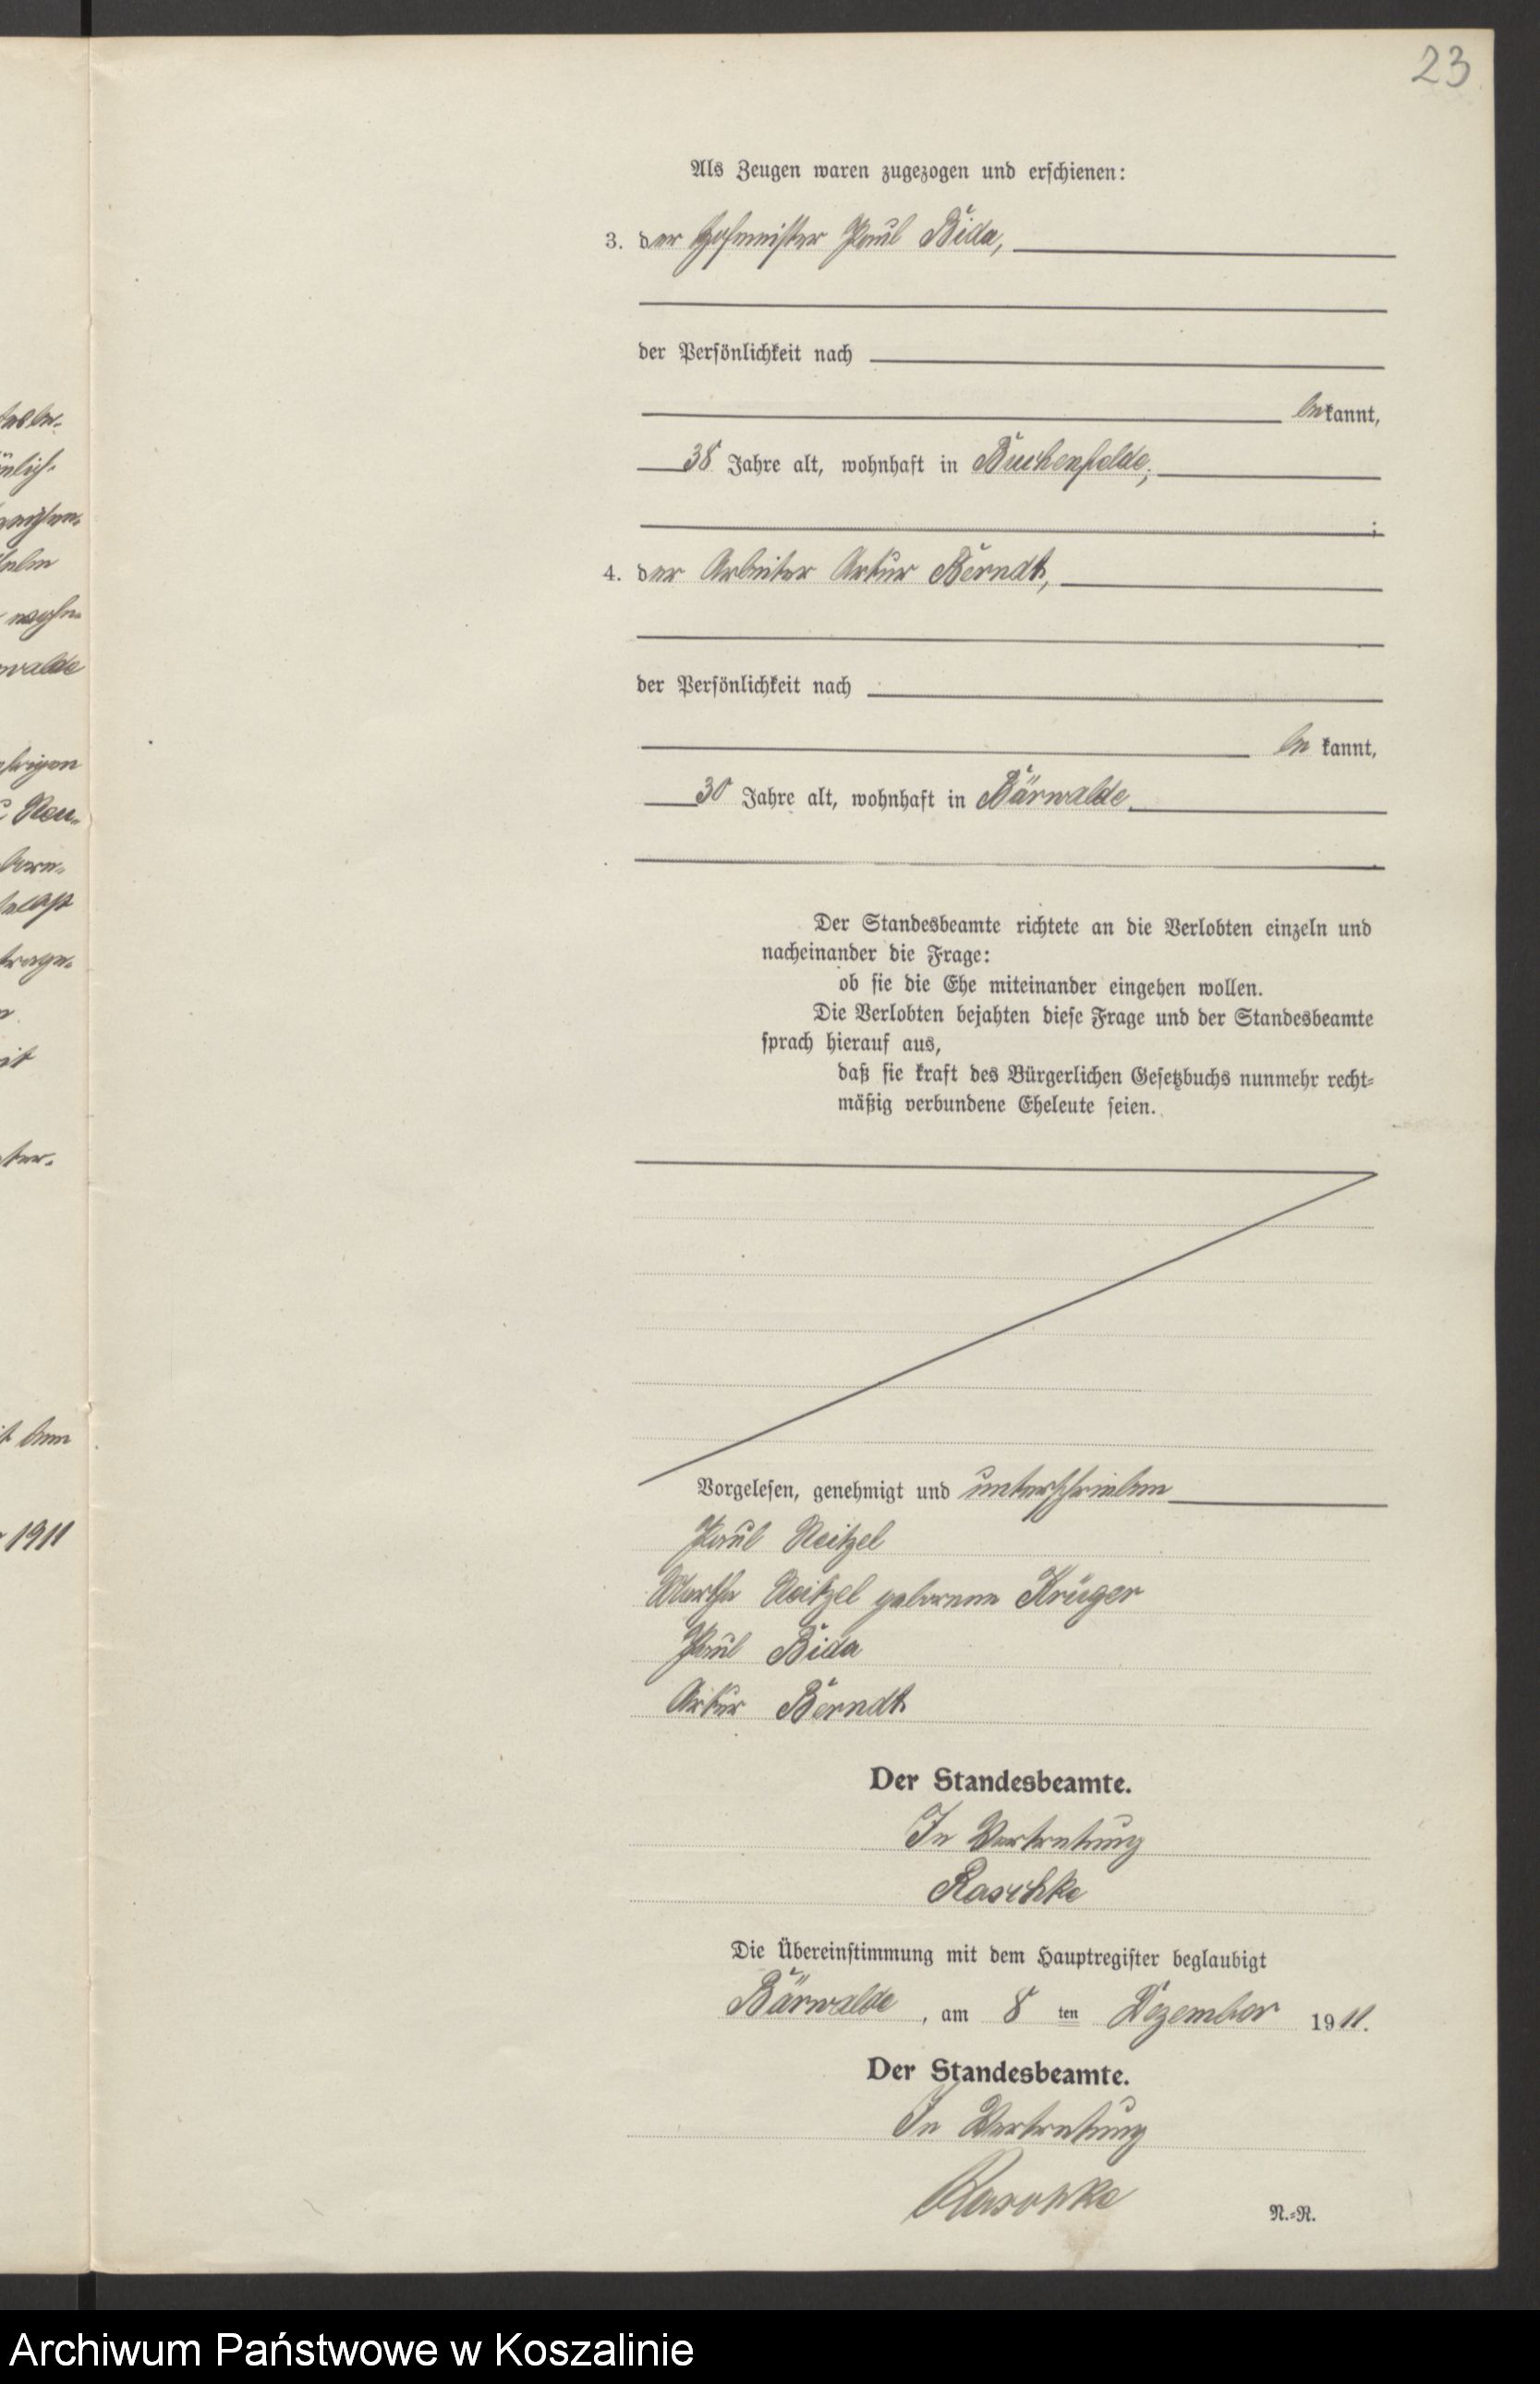 23
Als Zeugen waren zugezogen und erschienen:
3. der Hofmeister Paul Bida,
der Persönlichkeit nach
bekannt,
38 Jahre alt, wohnhaft in Buchenfelde,
;
4. der Arbeiter Artur Berndt,
der Persönlichkeit nach
be kannt,
30 Jahre alt, wohnhaft in Bärwalde
Der Standesbeamte richtete an die Verlobten einzeln und
nacheinander die Frage:
ob sie die Ehe miteinander eingehen wollen.
Die Verlobten bejahten diese Frage und der Standesbeamte
sprach hierauf aus,
daß sie kraft des Bürgerlichen Gesetzbuchs nunmehr recht-
mäßig verbundene Eheleute seien.
walde
1911
Vorgelesen, genehmigt und unterschrieben
Paul Neitzel
Martha Neitzel geborene Krüger
Paul Bida
Artur Berndt
Der Standesbeamte.
In Vertretung
Raschke
Die Übereinstimmung mit dem Hauptregister beglaubigt
Bärwalde, am 8 ten Dezember 1911.
Der Standesbeamte.
In Vertretung
Raschke
N.-R.
Archiwum Państwowe w Koszalinie